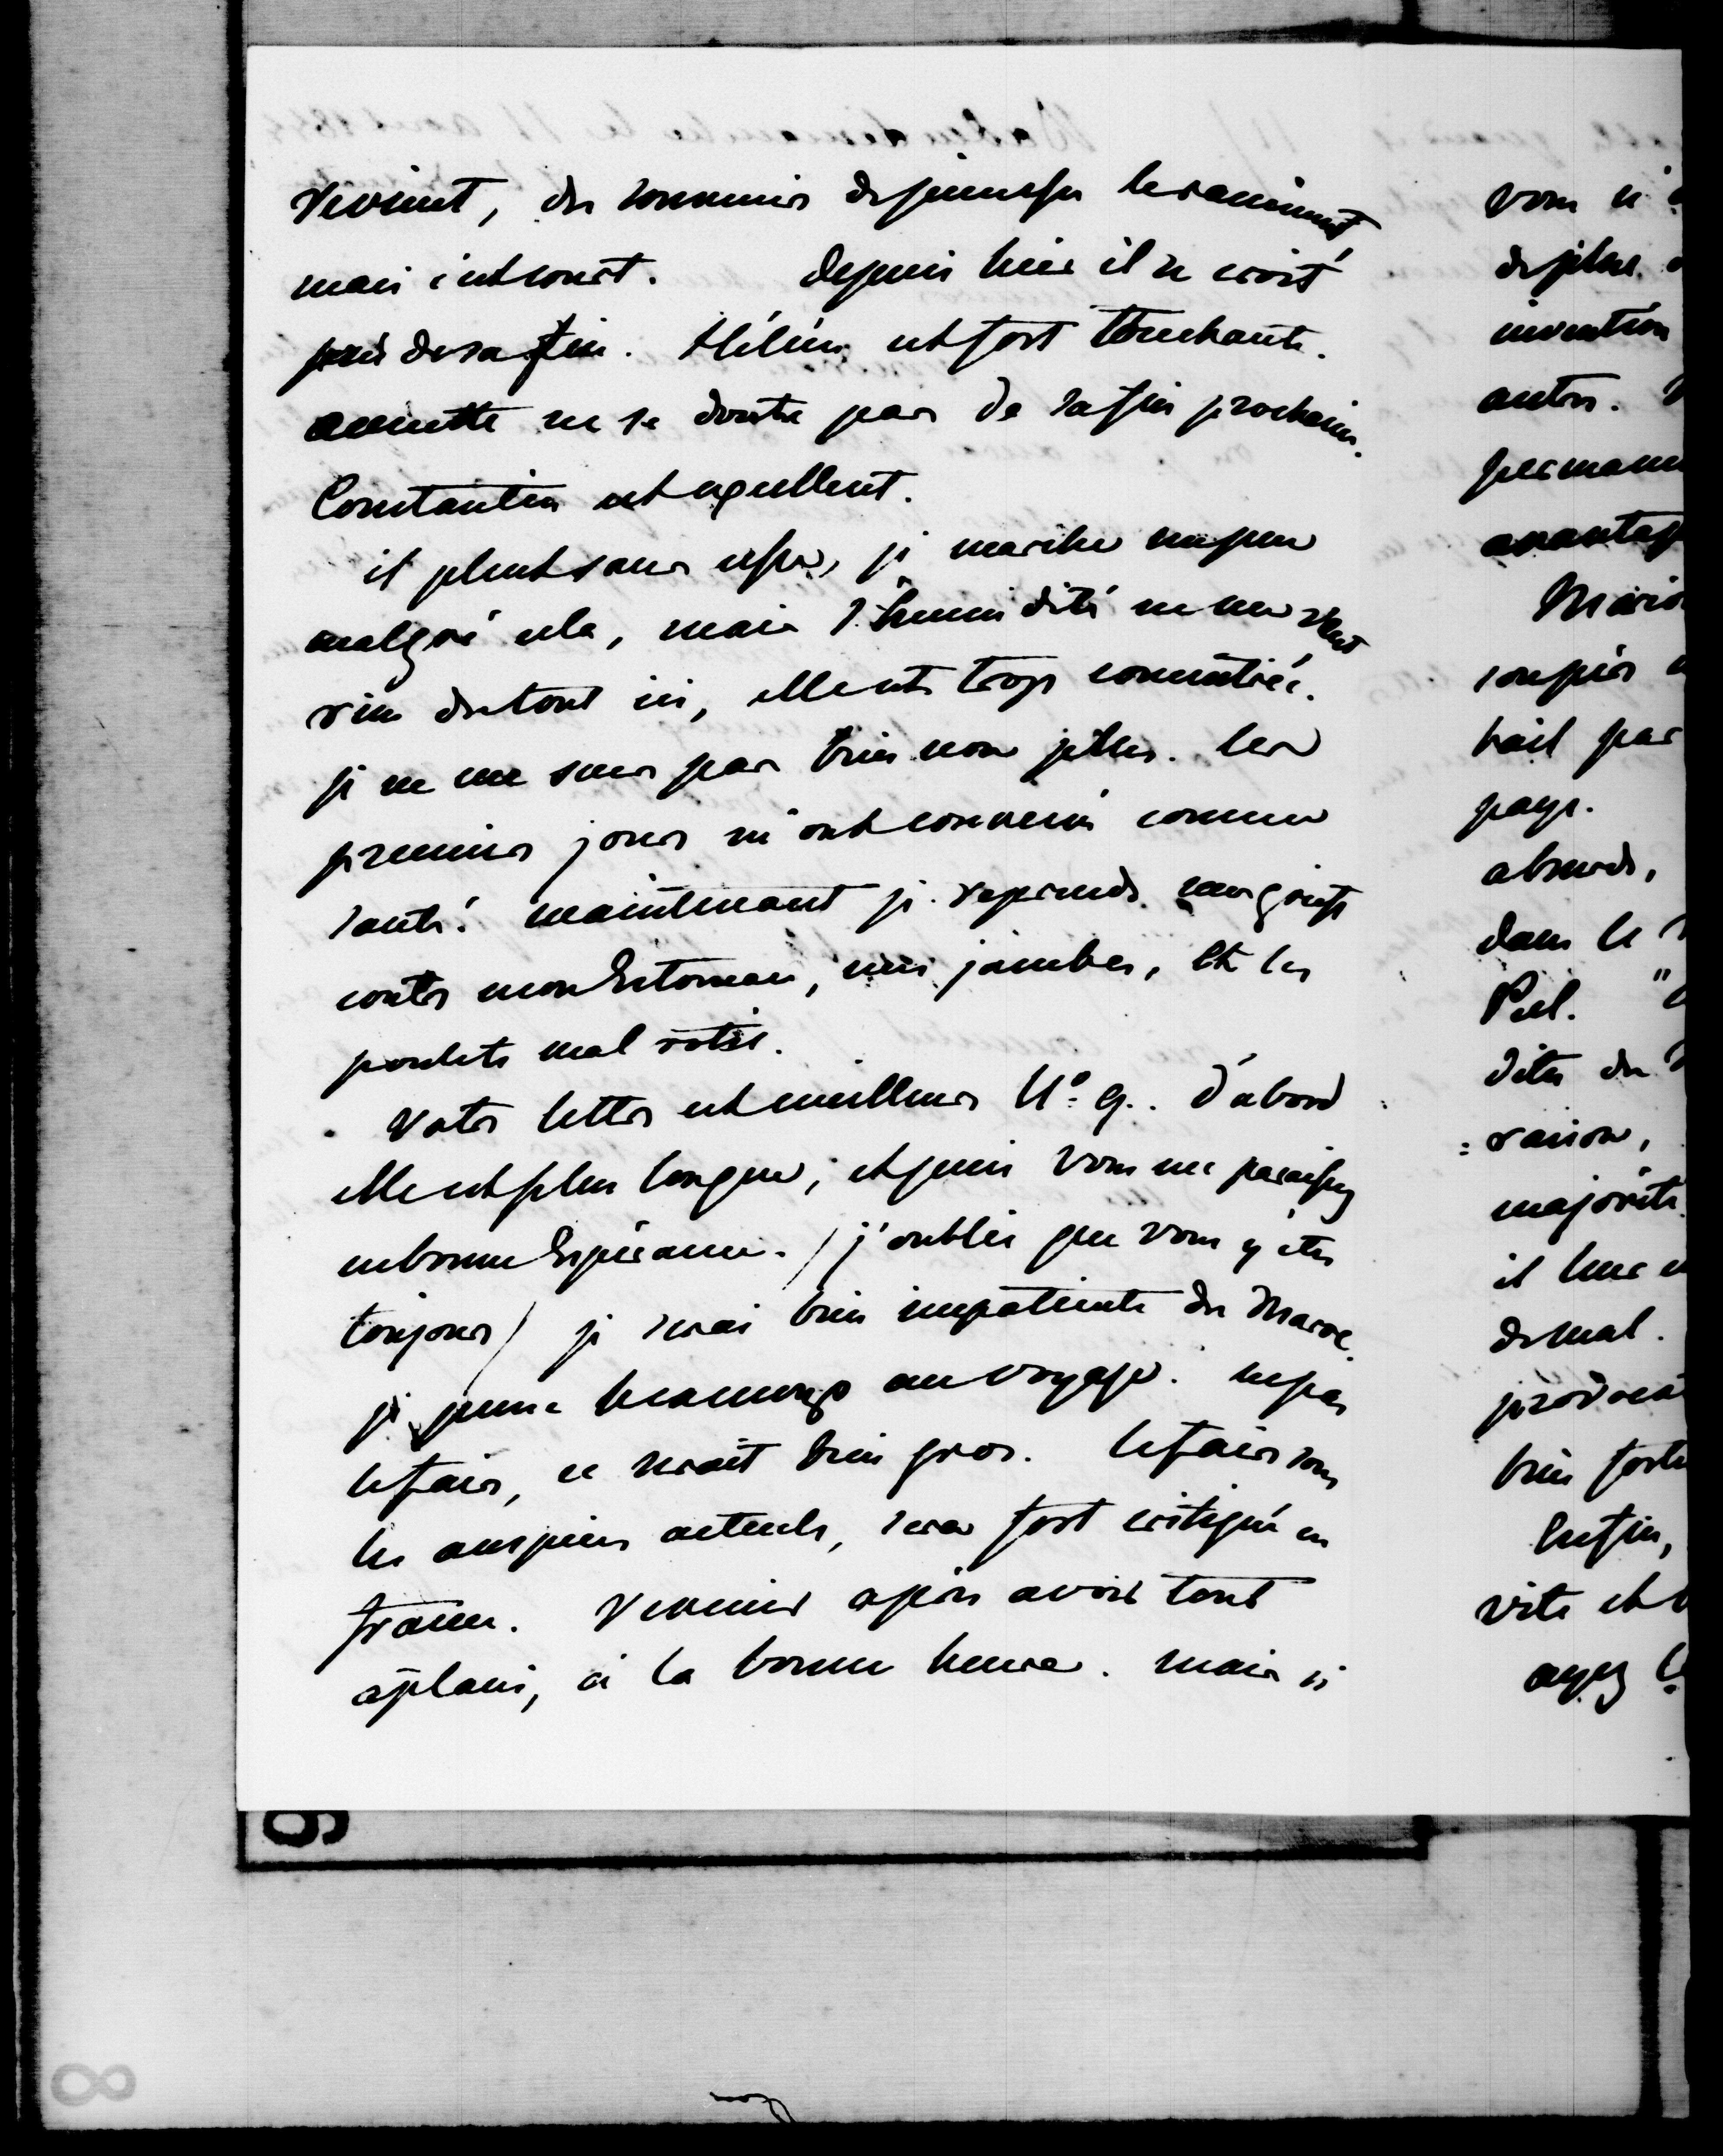 revient, des souvenirs de jeunesse le raniment
mais c'est court. Depuis hier il se croit
près de sa fin. Hélène est fort touchante.
annette ne se doute pas de sa fin prochaine.
Constantin est excellent.
il pleut sans cesse, je marche un peu
malgré cela, mais l'humidité ne me vaut
rien du tout ici, elle est trop concentrée.
je ne me sens pas bien non plus. les
premiers jours m'ont convenu comme
santé. maintenant je reprends mes griefs
contre mon Estomac, mes jambes, et les
poulets mal rotis.
Votre lettre est meilleure N° 9. D'abord
elle est plus longue; et puis vous me paraissez
en bonne Espérance. (j'oublie que vous y êtes
toujours) je serai bien impatiente du Maroc.
je pense beaucoup au voyage. ne pas
le faire, ce serait bien gros. le faire sous
les auspices actuels, sera fort critiqué en
france. Revenir après avoir tout
aplani, à la bonne heure. mais si
vous n'
de plus
invention
autre.
perman
avantag
Mario
soupir
trait par
pays.
absurde,
dans le
Peel. "
dites du
raison,
majorité
il leur
de mal.
bien forte
Enfin,
vite et
ayez